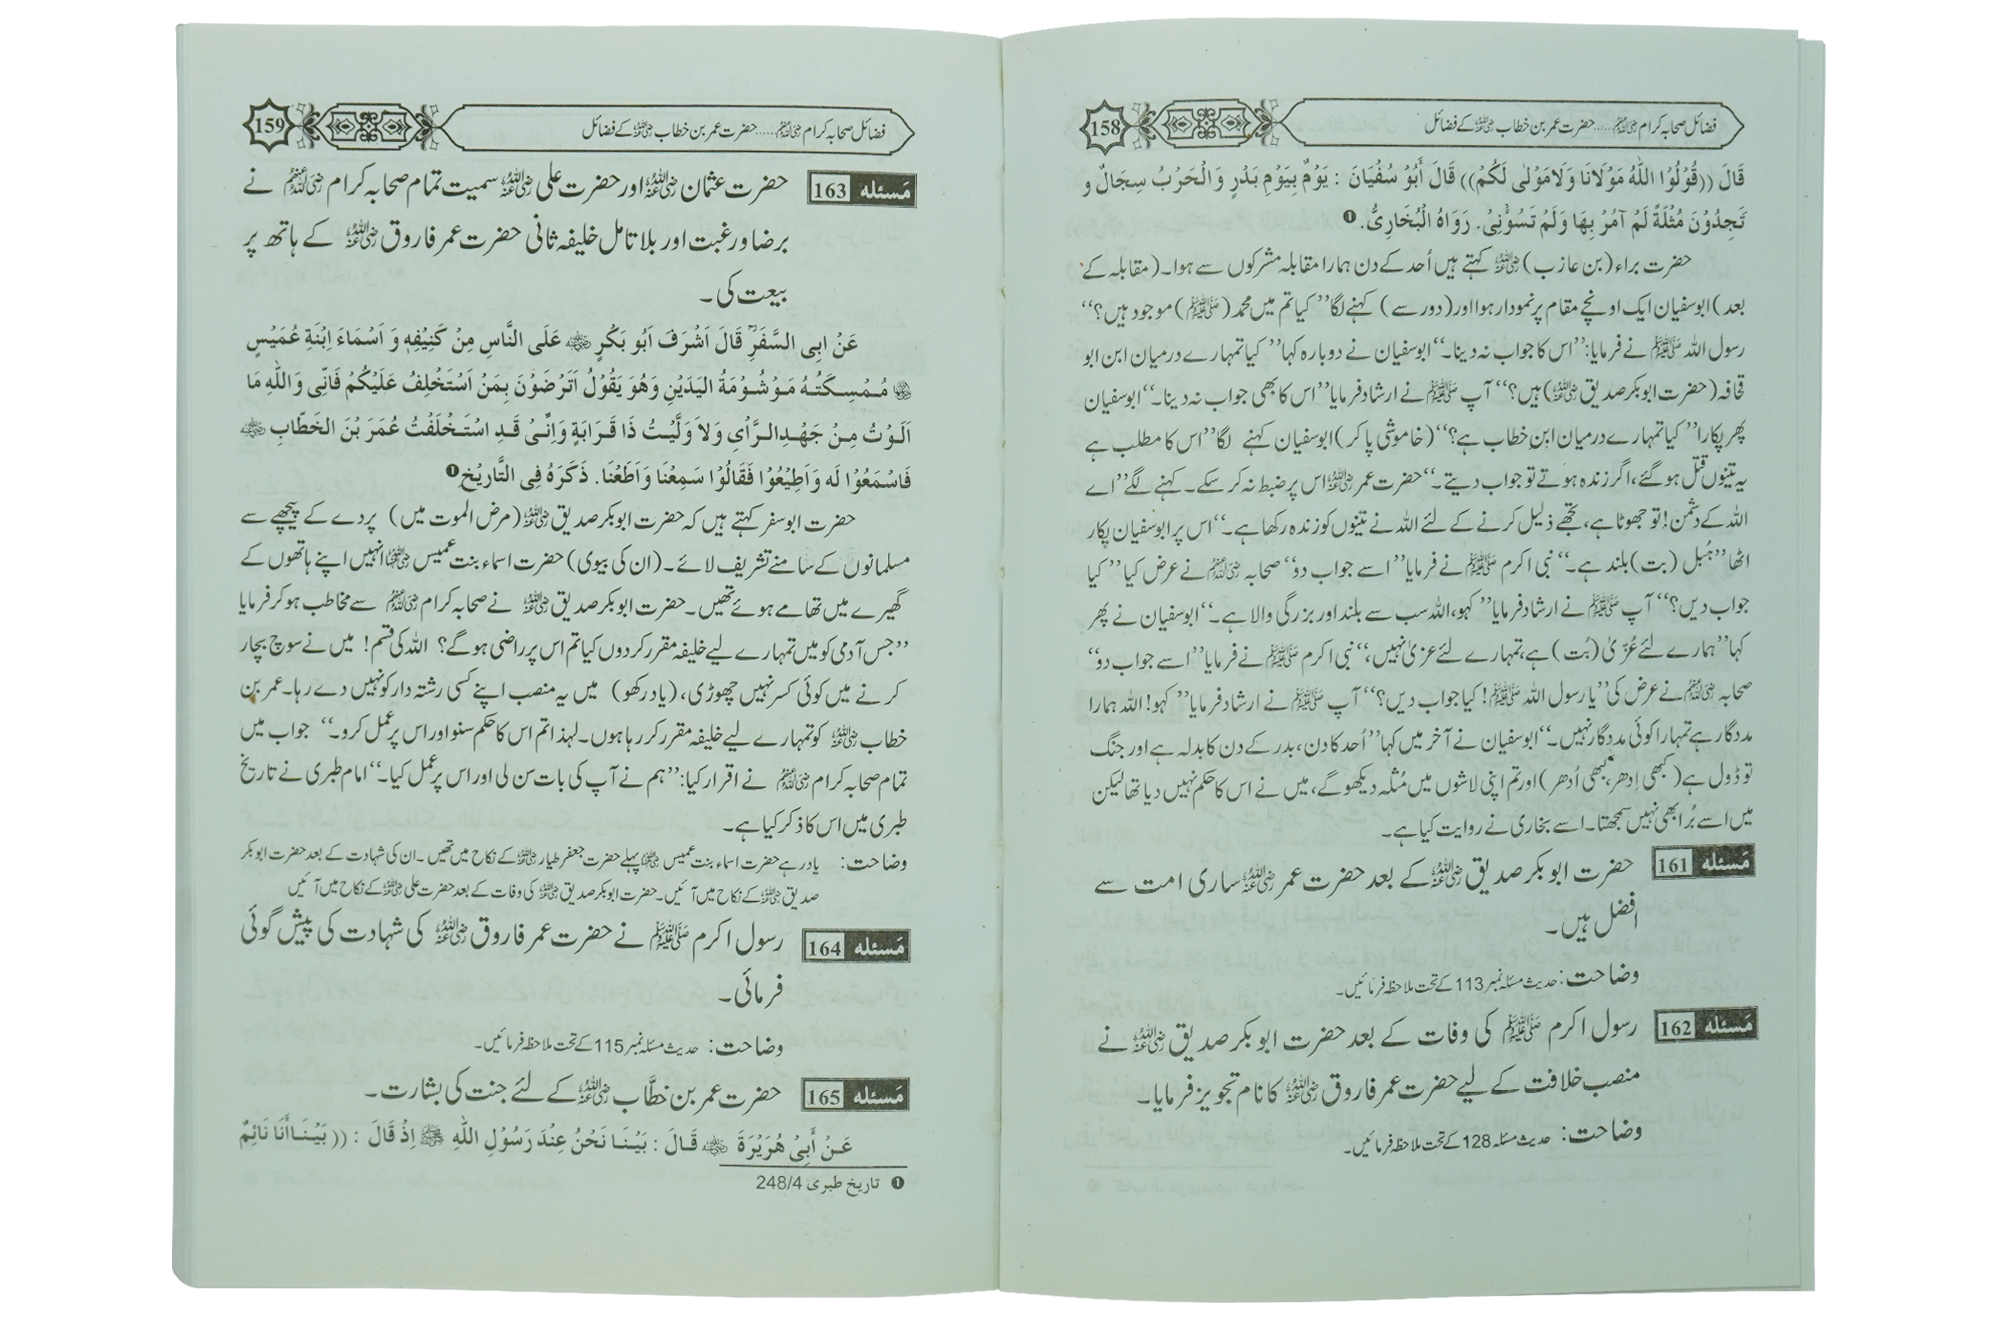 158 فضائل صحابہ کرام ﷢.....حضرت عمر بن خطاب ﷜ کے فضائل
قَالَ ((قُوْلُوْا اَللّٰهُ مَوْلَانَا وَلَا مَوْلٰی لَكُمْ)) قَالَ أَبُوْ سُفْیَانَ : یَوْمٌ بِیَوْمِ بَدْرٍ وَالْحَرْبُ سِجَالٌ وَ
تَجِدُوْنَ مُثْلَةً لَمْ آمُرْ بِهَا وَلَمْ تَسُؤْنِیْ. رَوَاهُ الْبُخَارِیُّ. ❶
حضرت براء (بن عازب) ﷜ کہتے ہیں اُحد کے دن ہمارا مقابلہ مشرکوں سے ہوا۔ (مقابلہ کے
بعد) ابوسفیان ایک اونچے مقام پر نمودار ہوا اور (دور سے) کہنے لگا ’’کیا تم میں محمد (ﷺ) موجود ہیں؟‘‘
رسول اللہ ﷺ نے فرمایا: ’’اس کا جواب نہ دینا۔‘‘ ابوسفیان نے دوبارہ کہا ’’کیا تمہارے درمیان ابن ابو
قحافہ (حضرت ابوبکر صدیق ﷜) ہیں؟‘‘ آپ ﷺ نے ارشاد فرمایا ’’اس کا بھی جواب نہ دینا۔‘‘ ابوسفیان
پھر پکارا ’’کیا تمہارے درمیان ابن خطاب ہے؟‘‘ (خاموشی پا کر) ابوسفیان کہنے لگا ’’اس کا مطلب ہے
یہ تینوں قتل ہو گئے، اگر زندہ ہوتے تو جواب دیتے۔‘‘ حضرت عمر ﷜ اس پر ضبط نہ کر سکے۔ کہنے لگے ’’اے
اللہ کے دشمن! تو جھوٹا ہے، تجھے ذلیل کرنے کے لئے اللہ نے تینوں کو زندہ رکھا ہے۔‘‘ اس پر ابوسفیان پکار
اٹھا ’’ہُبل (بت) بلند ہے۔‘‘ نبی اکرم ﷺ نے فرمایا ’’اسے جواب دو‘‘ صحابہ ﷢ نے عرض کیا ’’کیا
جواب دیں؟‘‘ آپ ﷺ نے ارشاد فرمایا ’’کہو، اللہ سب سے بلند اور بزرگی والا ہے۔‘‘ ابوسفیان نے پھر
کہا ’’ہمارے لئے عُزّیٰ (بُت) ہے، تمہارے لئے عزیٰ نہیں،‘‘ نبی اکرم ﷺ نے فرمایا ’’اسے جواب دو‘‘
صحابہ ﷢ نے عرض کی ’’یا رسول اللہ ﷺ! کیا جواب دیں؟‘‘ آپ ﷺ نے ارشاد فرمایا ’’کہو! اللہ ہمارا
مددگار ہے تمہارا کوئی مددگار نہیں۔‘‘ ابوسفیان نے آخر میں کہا ’’اُحد کا دن، بدر کے دن کا بدلہ ہے اور جنگ
تو ڈول ہے (کبھی اِدھر، کبھی اُدھر) اور تم اپنی لاشوں میں مُثلہ دیکھو گے، میں نے اس کا حکم نہیں دیا تھا لیکن
میں اسے بُرا بھی نہیں سمجھتا۔ اسے بخاری نے روایت کیا ہے۔
مَسئلہ 161 حضرت ابوبکر صدیق ﷜ کے بعد حضرت عمر ﷜ ساری امت سے
افضل ہیں۔
وضاحت: حدیث مسئلہ نمبر 113 کے تحت ملاحظہ فرمائیں۔
مَسئلہ 162 رسول اکرم ﷺ کی وفات کے بعد حضرت ابوبکر صدیق ﷜ نے
منصب خلافت کے لیے حضرت عمر فاروق ﷜ کا نام تجویز فرمایا۔
وضاحت: حدیث مسئلہ 128 کے تحت ملاحظہ فرمائیں۔
159 فضائل صحابہ کرام ﷢.....حضرت عمر بن خطاب ﷜ کے فضائل
مَسئلہ 163 حضرت عثمان ﷜ اور حضرت علی ﷜ سمیت تمام صحابہ کرام ﷢ نے
برضا ورغبت اور بلا تامل خلیفہ ثانی حضرت عمر فاروق ﷜ کے ہاتھ پر
بیعت کی۔
عَنْ اَبِی السَّفَرِ قَالَ اَشْرَفَ اَبُو بَكْرٍ ﷜ عَلَی النَّاسِ مِنْ كَنِیْفِهٖ وَ اَسْمَاءَ اِبْنَةِ عُمَیْسٍ
﷝ مُمْسِكَتُهُ مَوْشُوْمَةُ الْیَدَیْنِ وَهُوَ یَقُوْلُ اَتَرْضَوْنَ بِمَنْ اَسْتَخْلِفُ عَلَیْكُمْ فَاِنِّی وَاللّٰهِ مَا
اَلَوْتُ مِنْ جَهْدِ الرَّأْیِ وَلَا وَلَّیْتُ ذَا قَرَابَةٍ وَاِنِّیْ قَدِ اسْتَخْلَفْتُ عُمَرَ بْنَ الْخَطَّابِ ﷜
فَاسْمَعُوْا لَه وَاَطِیْعُوْا فَقَالُوْا سَمِعْنَا وَاَطَعْنَا. ذَكَرَهُ فِی التَّارِیْخِ ❶
حضرت ابوسفر کہتے ہیں کہ حضرت ابوبکر صدیق ﷜ (مرض الموت میں) پردے کے پیچھے سے
مسلمانوں کے سامنے تشریف لائے۔ (ان کی بیوی) حضرت اسماء بنت عمیس ﷞ انہیں اپنے ہاتھوں کے
گھیرے میں تھامے ہوئے تھیں۔ حضرت ابوبکر صدیق ﷜ نے صحابہ کرام ﷢ سے مخاطب ہو کر فرمایا
’’جس آدمی کو میں تمہارے لیے خلیفہ مقرر کر دوں کیا تم اس پر راضی ہو گے؟ اللہ کی قسم! میں نے سوچ بچار
کرنے میں کوئی کسر نہیں چھوڑی، (یاد رکھو) میں یہ منصب اپنے کسی رشتہ دار کو نہیں دے رہا۔ عمر بن
خطاب ﷜ کو تمہارے لیے خلیفہ مقرر کر رہا ہوں۔ لہذا تم اس کا حکم سنو اور اس پر عمل کرو۔‘‘ جواب میں
تمام صحابہ کرام ﷢ نے اقرار کیا: ’’ہم نے آپ کی بات سن لی اور اس پر عمل کیا۔‘‘ امام طبری نے تاریخ
طبری میں اس کا ذکر کیا ہے۔
وضاحت: یاد رہے حضرت اسماء بنت عمیس ﷞ پہلے حضرت جعفر طیار ﷜ کے نکاح میں تھیں۔ ان کی شہادت کے بعد حضرت ابوبکر
صدیق ﷜ کے نکاح میں آئیں۔ حضرت ابوبکر صدیق ﷜ کی وفات کے بعد حضرت علی ﷜ کے نکاح میں آئیں
مَسئلہ 164 رسول اکرم ﷺ نے حضرت عمر فاروق ﷜ کی شہادت کی پیش گوئی
فرمائی۔
وضاحت: حدیث مسئلہ نمبر 115 کے تحت ملاحظہ فرمائیں۔
مَسئلہ 165 حضرت عمر بن خطَّاب ﷜ کے لئے جنت کی بشارت۔
عَنْ أَبِیْ هُرَیْرَةَ ﷜ قَالَ : بَیْنَا نَحْنُ عِنْدَ رَسُوْلِ اللّٰهِ ﷺ اِذْ قَالَ : ((بَیْنَا أَنَا نَائِمٌ
❶ تاریخ طبری 248/4